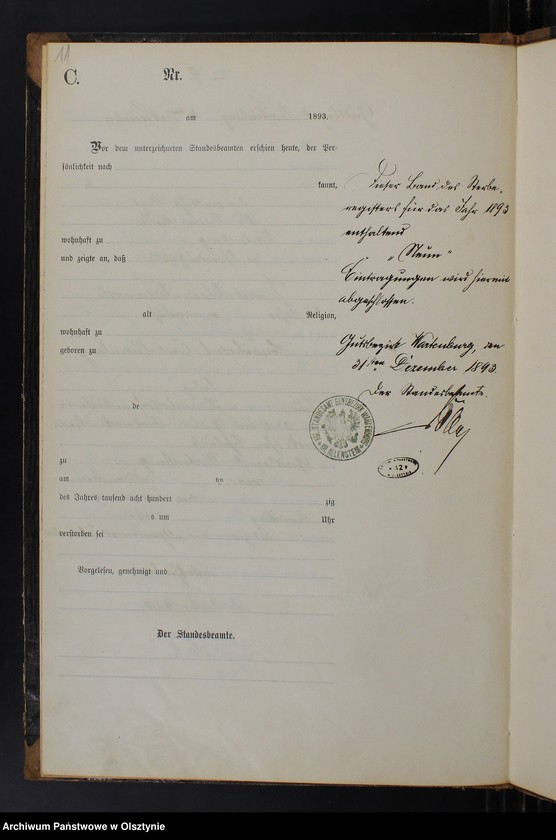 11
C. Nr.
am 1893.
Vor dem unterzeichneten Standesbeamten erschien heute, der Per-
sönlichkeit nach
kannt,
wohnhaft zu
und zeigte an, daß
alt Religion,
wohnhaft zu
geboren zu
de
zu
am ten
des Jahres tausend acht hundert zig
s um Uhr
verstorben sei
Vorgelesen, genehmigt und
Der Standesbeamte.
Dieser Band des Sterbe-
registers für das Jahr 1893
enthaltend
„Neun“
Eintragungen wird hiermit
abgeschlossen.
Gutsbezirk Wartenburg, den
31ten Dezember 1893.
Der Standesbeamte.
STANDESAMT GUTSBEZIRK WARTENBURG
KR. ALLENSTEIN
Archiwum Państwowe w Olsztynie